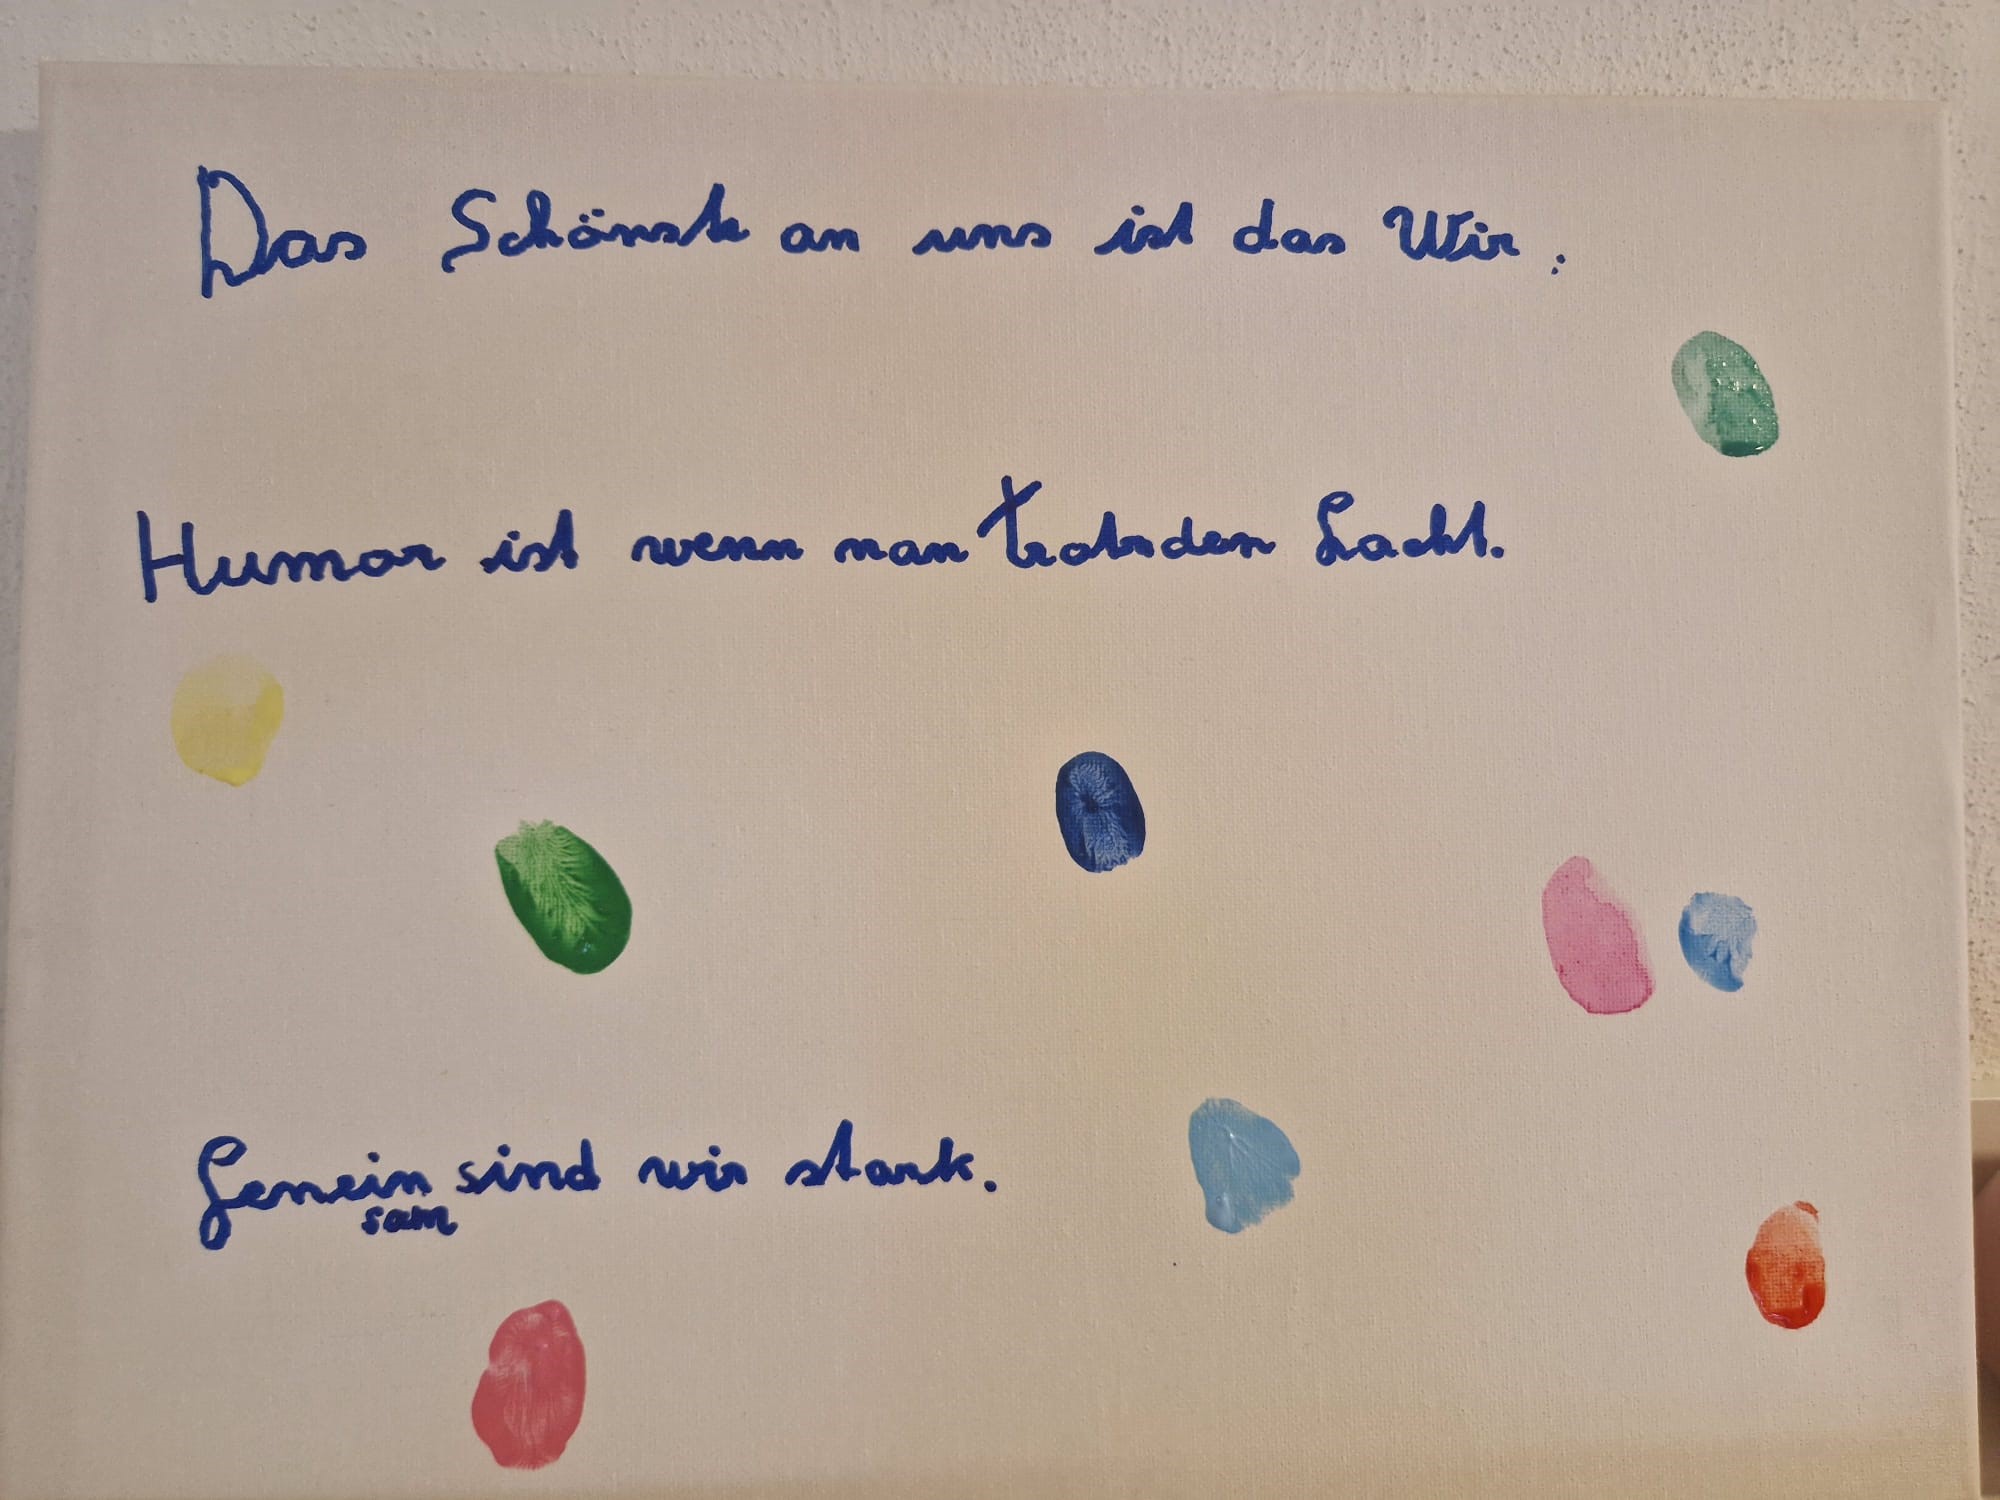 Das Schönste an uns ist das Wir.
Humor ist wenn man trotzden Lacht.
Gemein sind wir stark.
sam